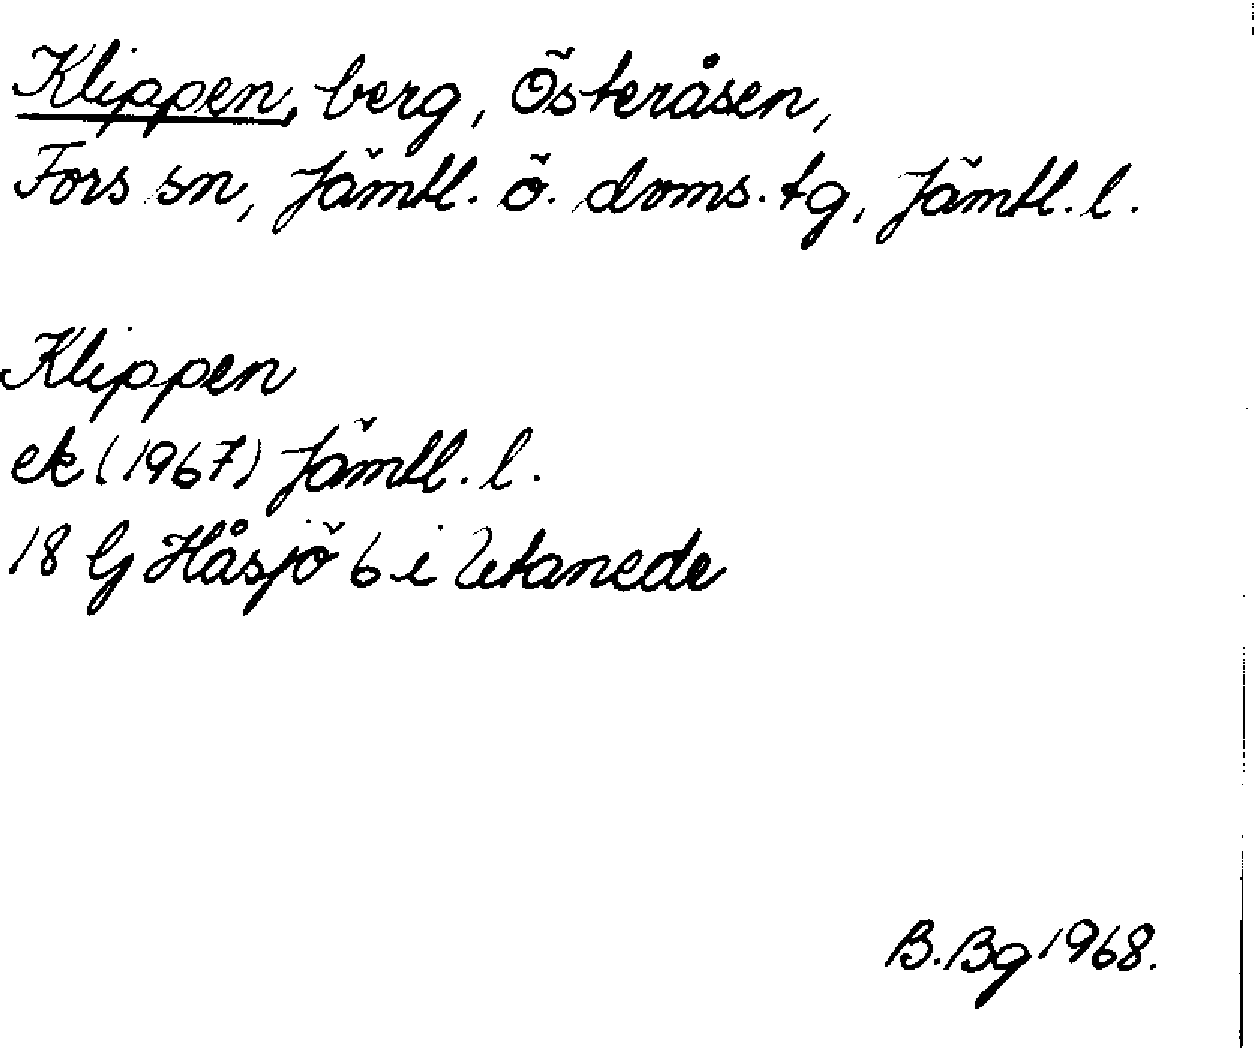 Klippen, berg, Österåsen,
Fors sn, Jämtl. ö. doms. tg, Jämtl. l.
Klippen
ek (1967) Jämtl. l.
18 G Håsjö 6 i Utanede
B. Bg 1968.